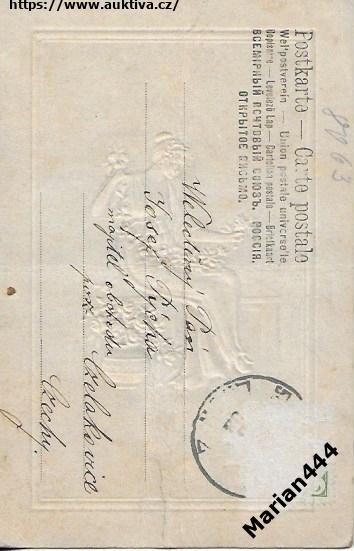 https://www.auktiva.cz/
Postkarte — Carte postale
Weltpostverein — Union postale universelle
Dopisnice — Levelező Lap — Cartolina postale — Briefkaart
ВСЕМІРНЫЙ ПОЧТОВЫЙ СОЮЗЪ. РОССІЯ.
ОТКРЫТОЕ ПИСЬМО.
Pan
Josef
majitel obchodu
Čelakovice
Čechy.
Marian444